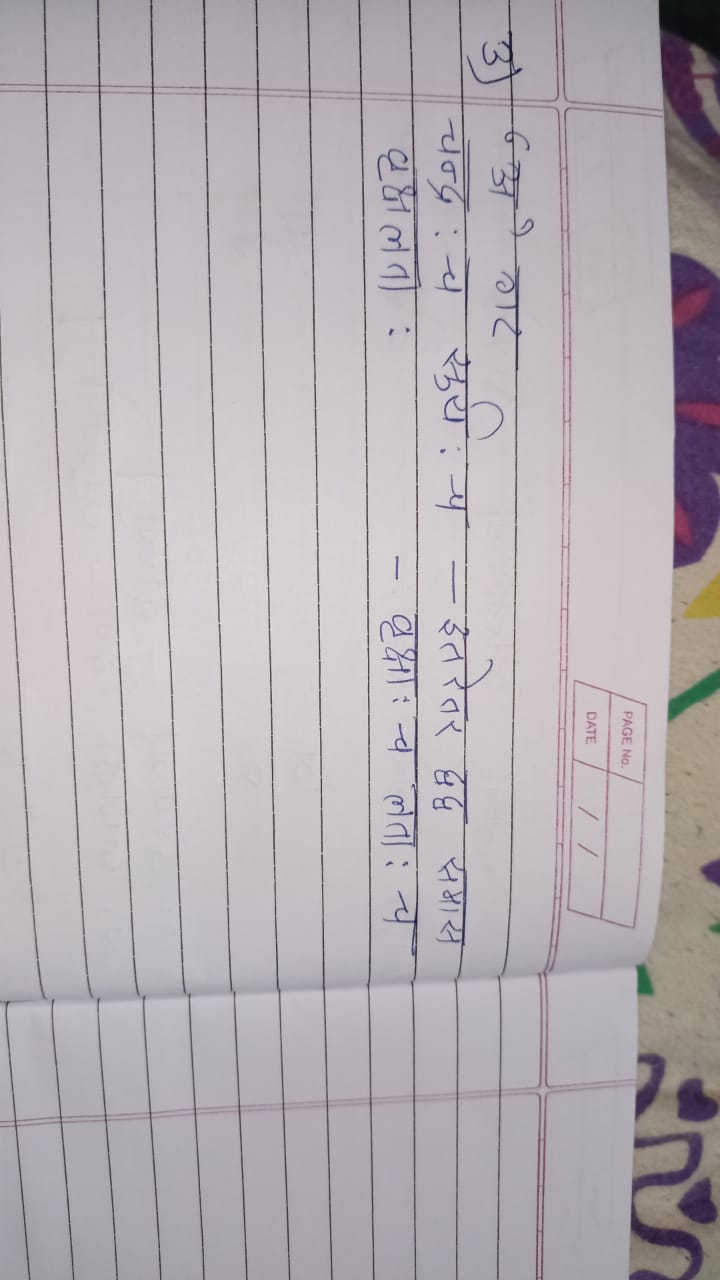 PAGE No.
DATE / /
3) 'अ' गट
चन्द्र : च सूर्य : च — इतरेतर द्वंद्व समास
वृक्षलता : - वृक्षा : च लता : च